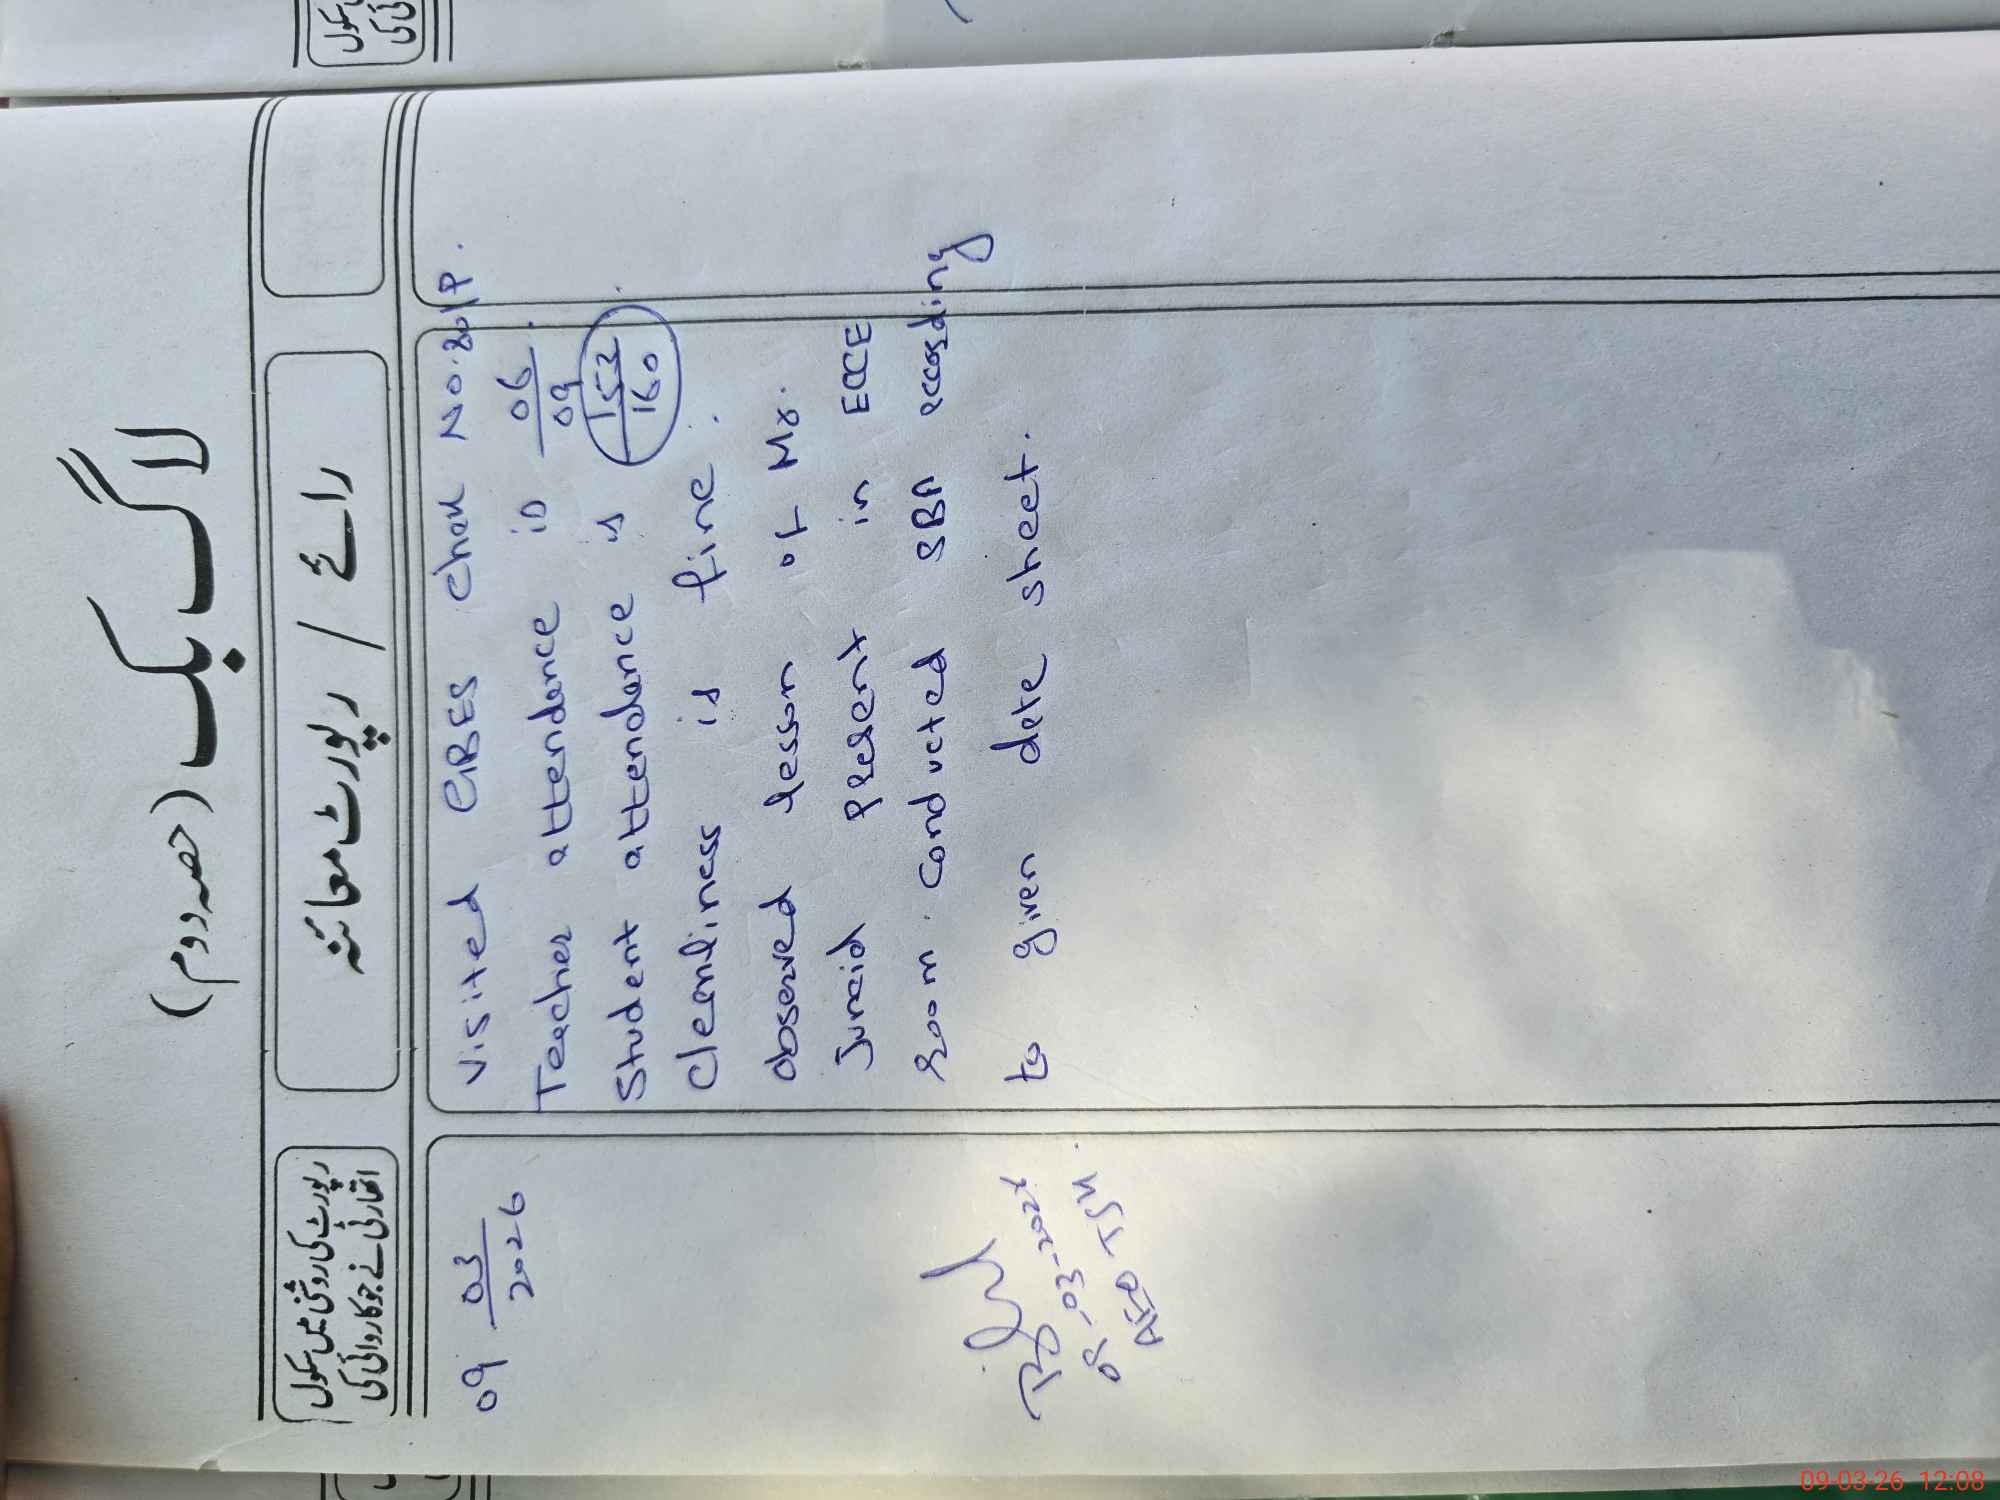 لاگ بک (حصہ دوم)
رائے / رپورٹ معائنہ
رپورٹ کی روشنی میں سکول
اتھارٹی نے جو کاروائی کی
09 03/2026
Visited GBES Chak No. 201P.
Teacher attendence is 06/09.
Student attendance is 152/160.
Cleanliness is fine.
observed lesson of Mr.
Junaid present in ECCE
room. conducted SBA according
to given date sheet.
AEO TSM.
09-03-26 12:08